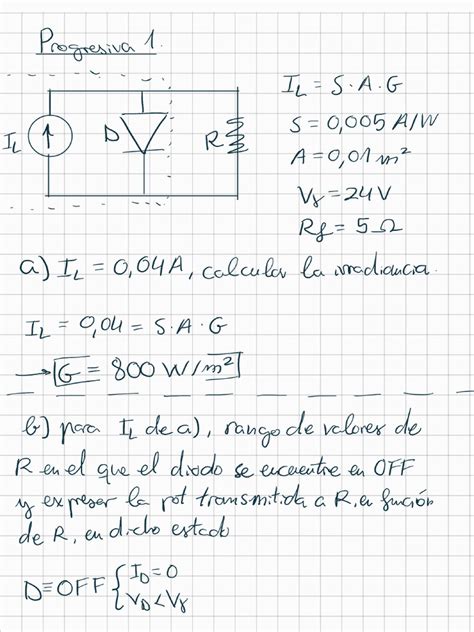 Progresiva 1.
I_L = S·A·G
S = 0,005 A/W
A = 0,01 m²
V_γ = 24V
R_f = 5 Ω
I_L
D
R
a) I_L = 0,04A, calcular la irradiancia.
I_L = 0,04 = S·A·G
→ G = 800 W/m²
b) para I_L de a), rango de valores de
R en el que el diodo se encuentre en OFF
y expresar la pot transmitida a R, en función
de R, en dicho estado
D≡OFF { I_D = 0
V_D < V_γ